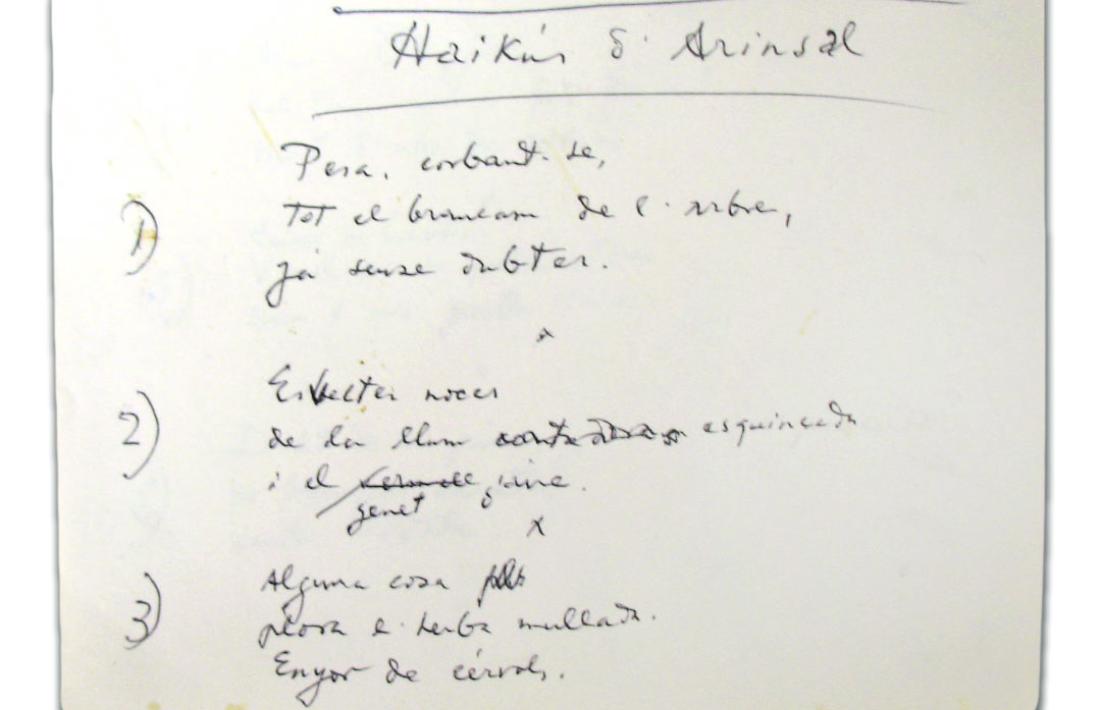 Haikús d'Arinsal
1)
Pesa, corbant-se,
tot el brancam de l'arbre,
ja sense dubtes.
x
2)
noces
de la llum esquinçada
i el genet
x
3)
Alguna cosa
plora e herba mullada.
Enyor de cérvols.